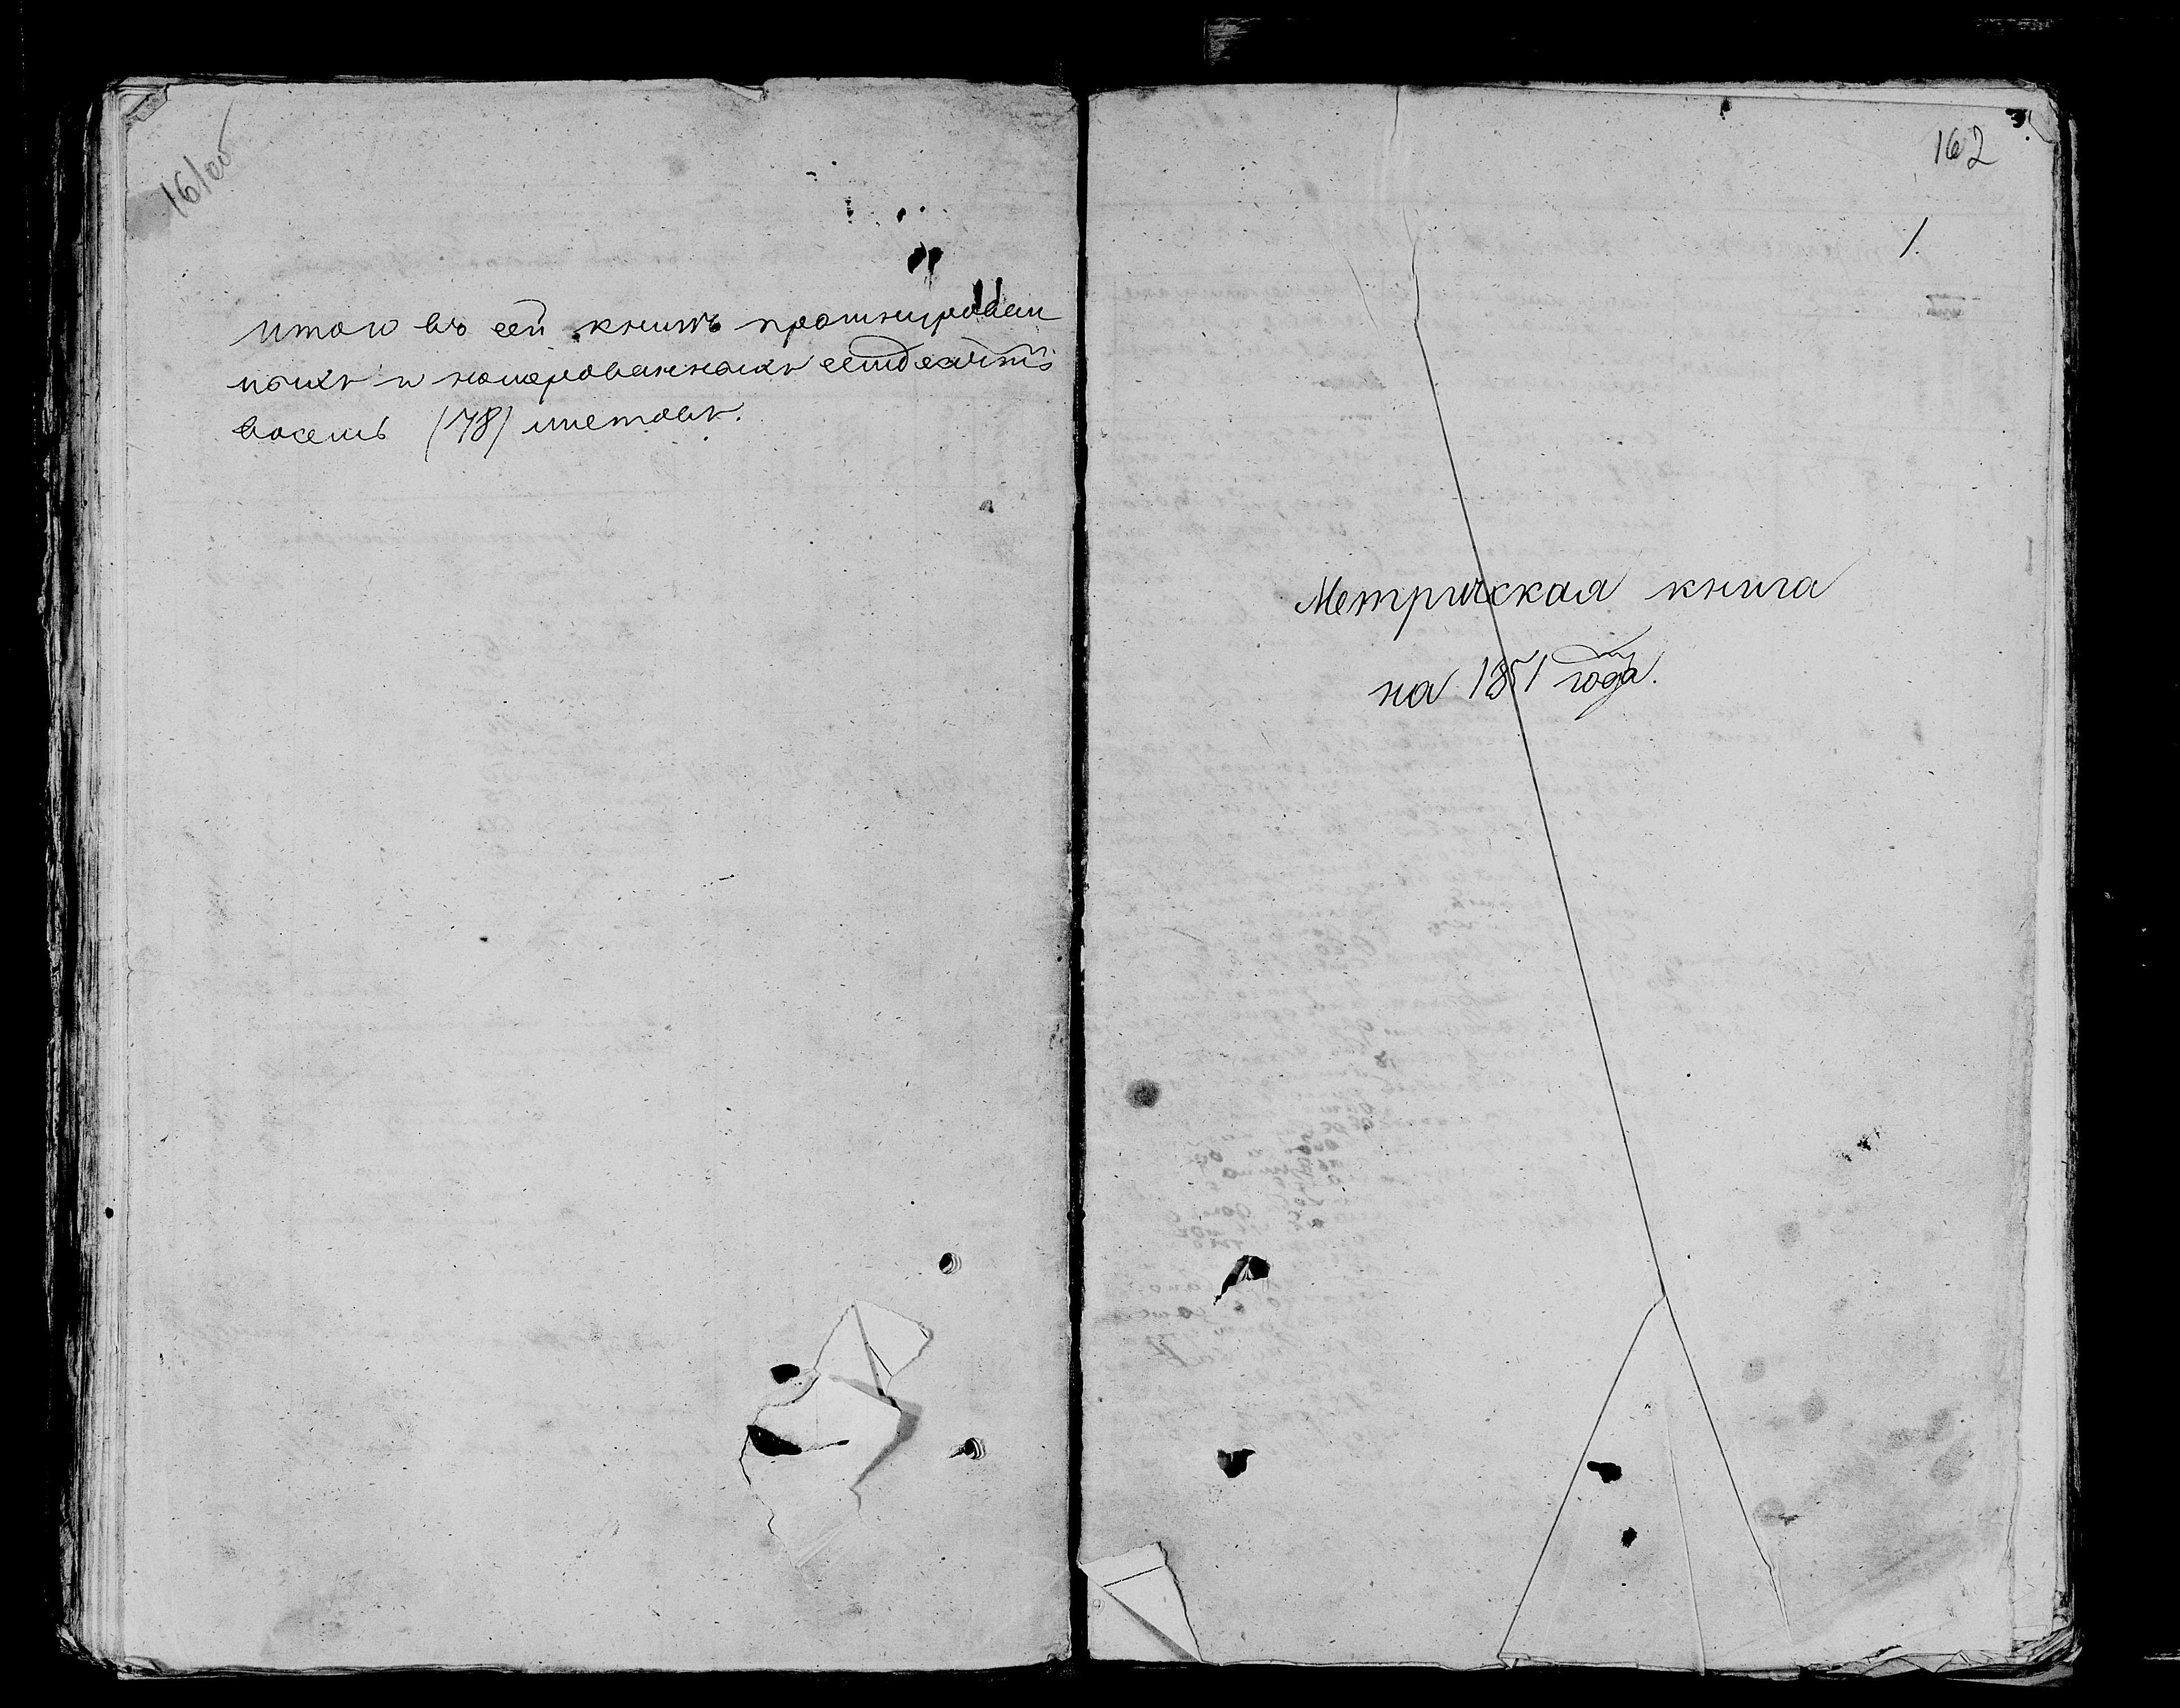 161 об
итого въ сей книгѣ прошнурован
ныхъ и номерованныхъ семдесятъ
восемь (78) листовъ.
162
1.
Метрическая книга
на 1851 года.